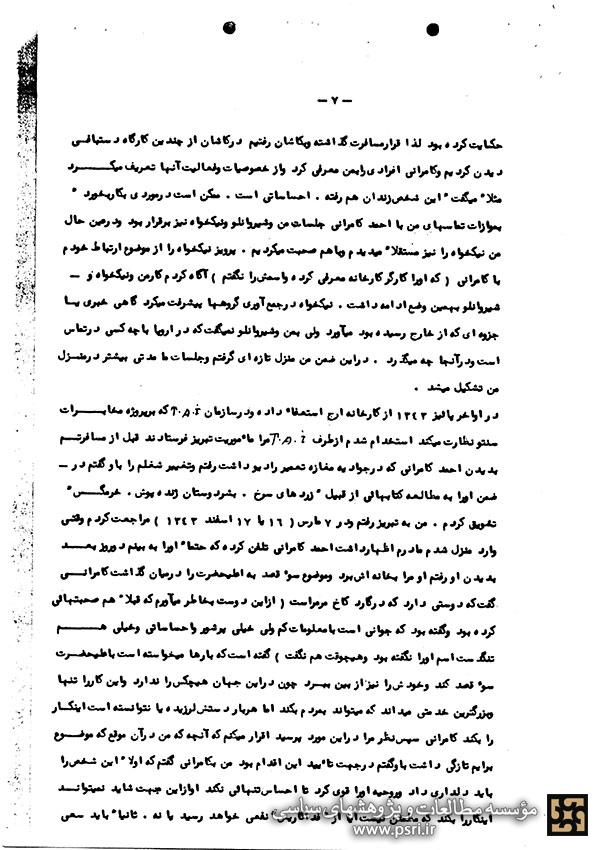 — ۷ —
حکایت کرده بود لذا قرار مسافرت گذاشته وبکاشان رفتیم درکاشان از چندین کارگاه دستبافی
دیدن کردیم وکامرانی افرادی را بمن معرفی کرد واز خصوصیات وفعالیت آنها تعریف میکرد
مثلا" میگفت " این شخص زندان هم رفته . احساساتی است . ممکن است درموردی بکاربخورد "
بموازات تماسهای من با احمد کامرانی جلسات من وشیروانلو ونیکخواه نیز برقرار بود ودرعین حال
من نیکخواه را نیز مستقلا" میدیدم وباهم صحبت میکردیم . پرویز نیکخواه را از موضوع ارتباط خودم
با کامرانی ( که اورا کارگر کارخانه معرفی کرده واسمش را نگفتم ) آگاه کردم کارمن ونیکخواه و —
شیروانلو بهمین وضع ادامه داشت . نیکخواه درجمع آوری گروهها پیشرفت میکرد گاهی خبری یا
جزوه ای که از خارج رسیده بود میآورد ولی بمن وشیروانلو نمیگفت که در اروپا باچه کسی درتماس
است ودرآنجا چه میگذرد . دراین ضمن من منزل تازه ای گرفتم وجلسات ما مدتی بیشتر درمنزل
من تشکیل میشد .
در اواخر پائیز ۱۳۴۳ از کارخانه ارج استعفا" داده ودرسازمان که برپروژه مخابرات
سنتو نظارت میکند استخدام شدم ازطرف مرا ما"موریت تبریز فرستادند قبل از مسافرتم
بدیدن احمد کامرانی که درجوادیه مغازه تعمیر رادیو داشت رفتم وتغییر شغلم را باو گفتم در —
ضمن اورا به مطالعه کتابهائی از قبیل " زردهای سرخ . بشردوستان ژنده پوش . خرمگس "
تشویق کردم . من به تبریز رفتم ودر ۷ مارس ( ۱۶ یا ۱۷ اسفند ۱۳۴۳ ) مراجعت کردم وقتی
وارد منزل شدم مادرم اظهارداشت احمد کامرانی تلفن کرده که حتما" اورا به بینم دوروز بعد
بدیدن او رفتم او مرا بخانه اش برد وموضوع سو" قصد به اعلیحضرت را درمیان گذاشت کامرانی
گفت که دوستی دارد که درگارد کاخ مرمراست ( ازاین دوست بخاطر میآورم که قبلا" هم صحبتهائی
کرده بود وگفته بود که جوانی است با معلومات کم ولی خیلی پرشور واحساساتی وخیلی هم
تنگدست اسم اورا نگفته بود وهیچوقت هم نگفت ) گفته است که بارها میخواسته است باعلیحضرت
سو" قصد کند وخودش را نیز از بین ببرد چون دراین جهان هیچکس را ندارد واین کاررا تنها
وبزرگترین خدمتی میداند که میتواند بمردم بکند اما هربار دستش لرزیده یا نتوانسته است اینکار
را بکند کامرانی سپس نظر مرا دراین مورد پرسید اقرار میکنم که آنچه که من درآن موقع که موضوع
برایم تازگی داشت باوگفتم درجهت تایید این اقدام بود من بکامرانی گفتم که اولا" این شخص را
باید دلداری داد وروحیه اورا قوی کرد تا احساس تنهائی نکند اوازاین جهت شاید نمیتواند
اینکاررا بکند که مطمئن نیست آیا از نفعی خواهد رسید یا نه . ثانیا" باید سعی
مؤسسه مطالعات و پژوهشهای سیاسی
www.psri.ir